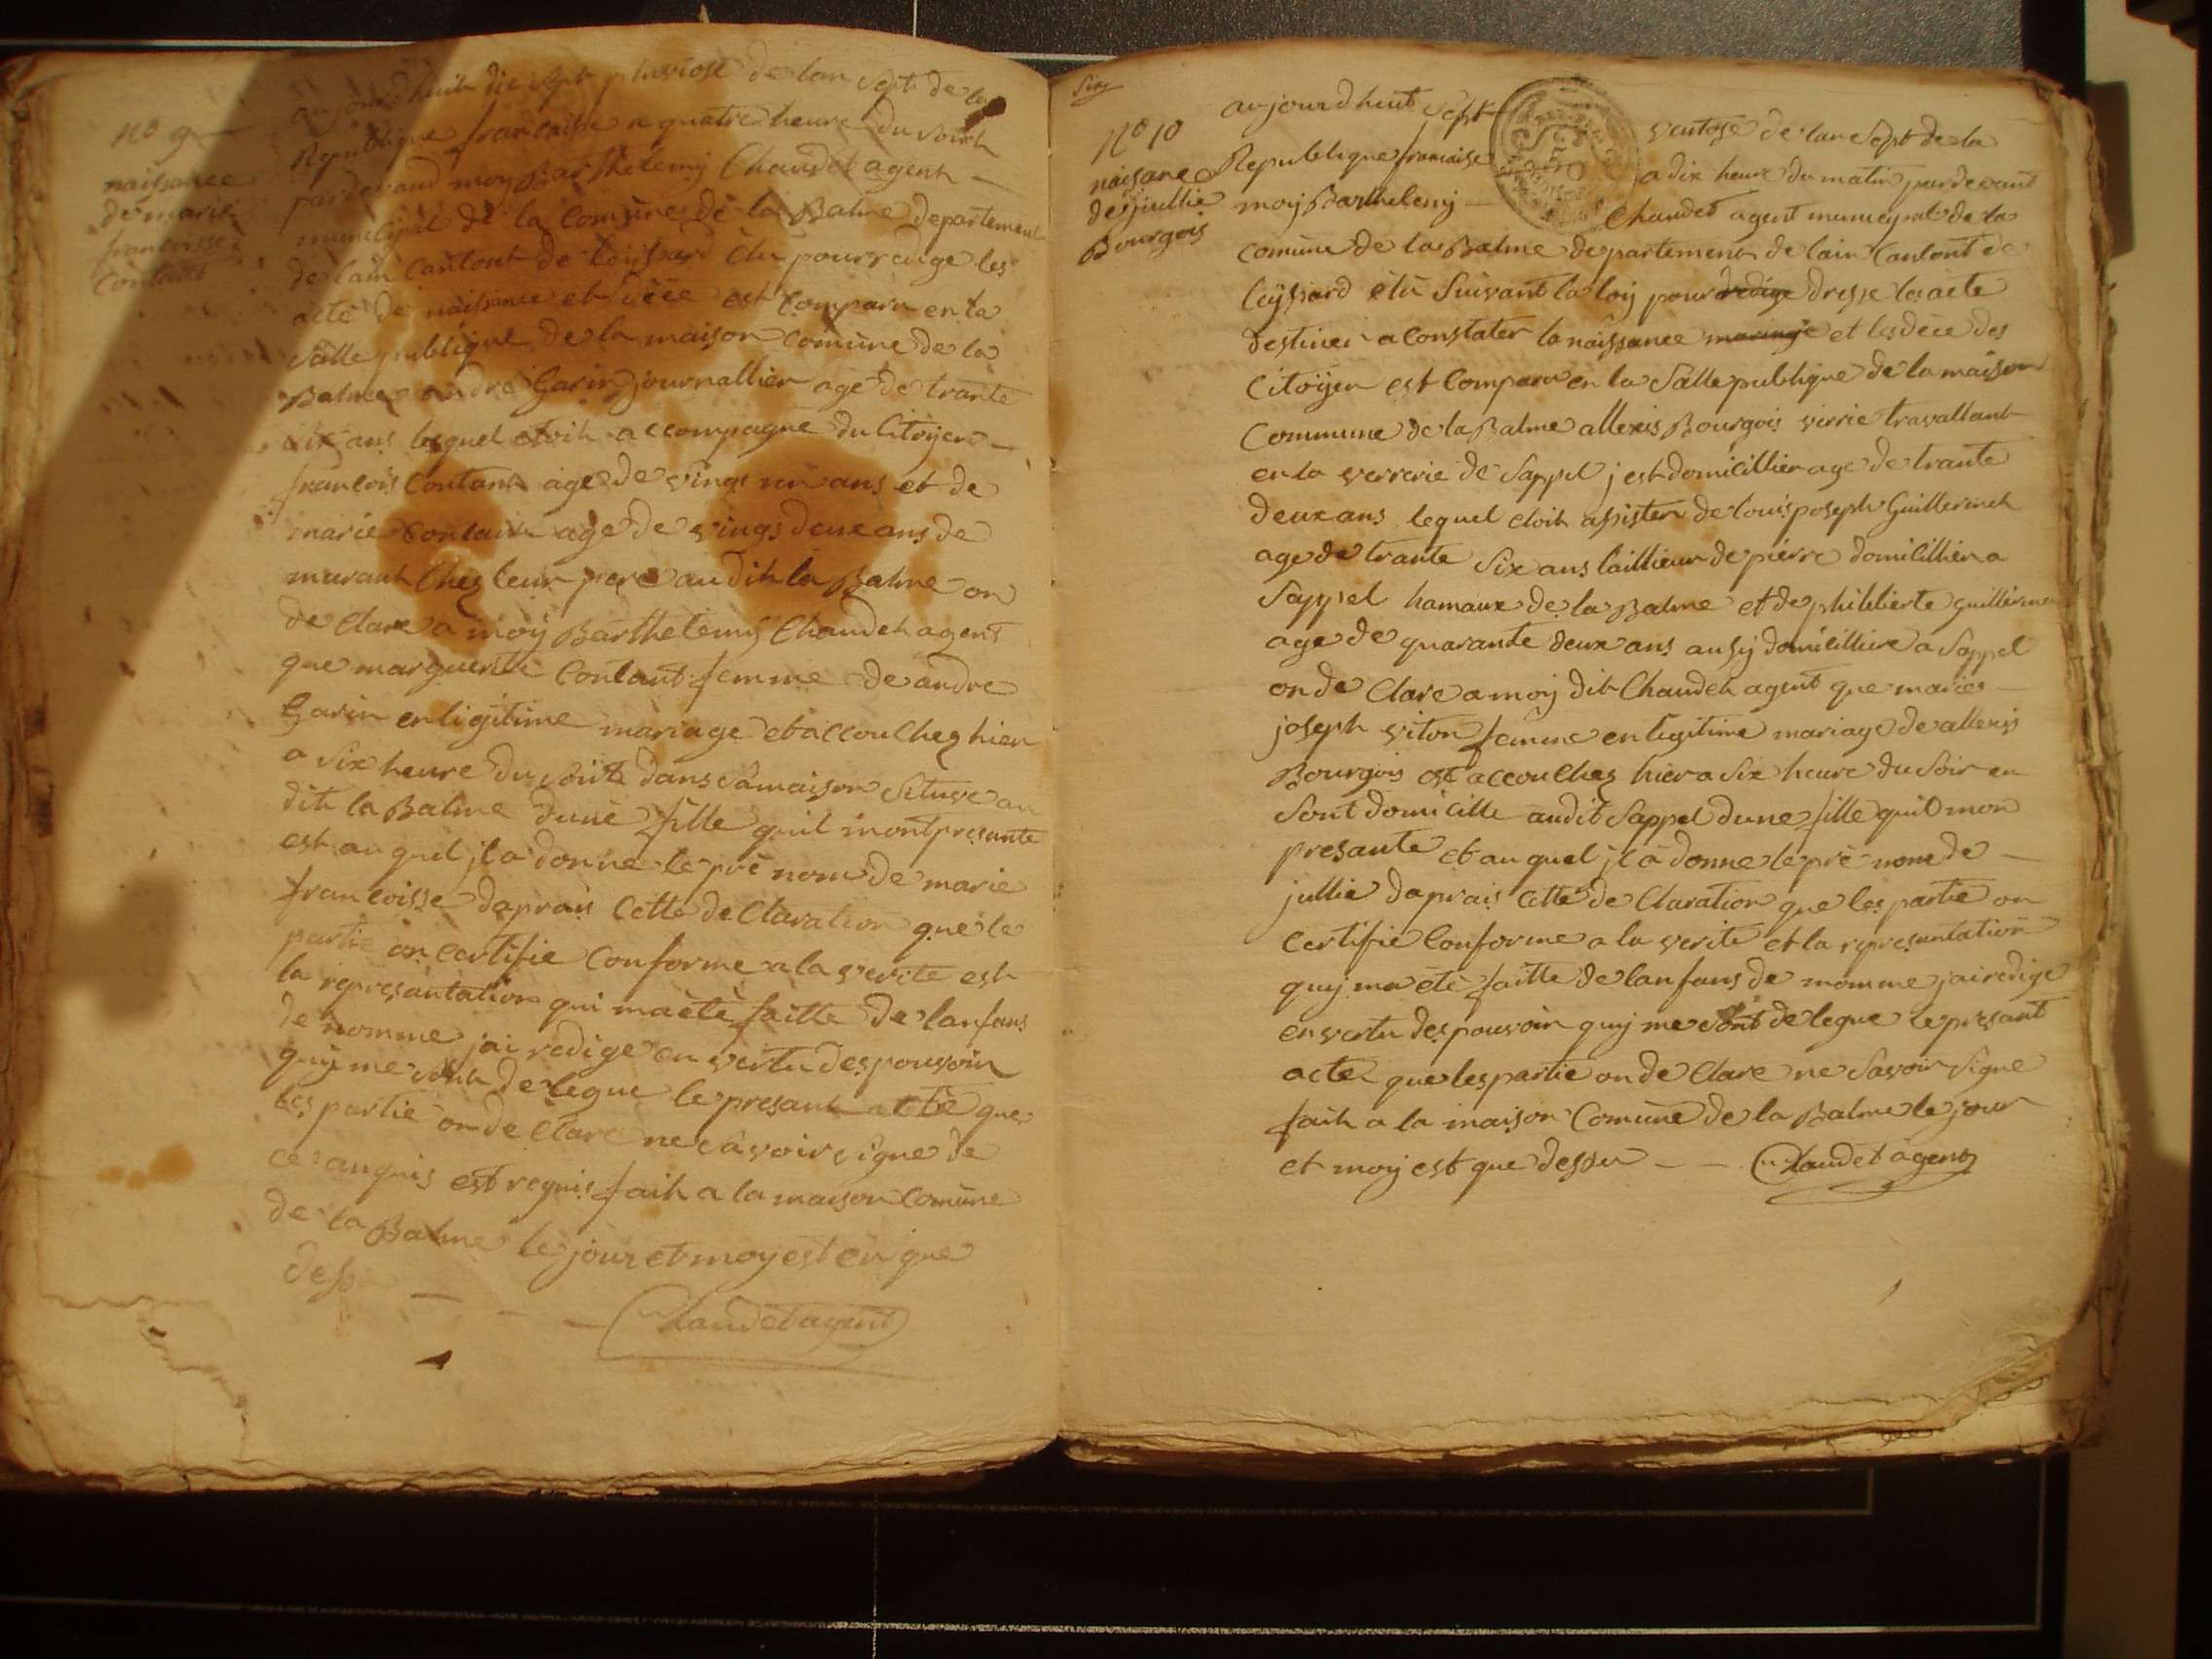 no 9
naissance
de marie
francoisse
Contant
aujourdhuit dix sept pluviose de lan Sept de la
Republique francaisse a quatre heure du Soirt
pardevand moy Barthelemy Chaudet agent
municipal de la Comune de la Balme departement
de lain Cantont de leyssard élu pour redige les
acte de naissance et décé est Comparu en la
Salle publique de la maison Comune de la
Balme andre Garin journallier age de trante
six ans lesquel etoit accompagne du Citoyen
francois Contant age de vings un ans et de
marie Contant age de vings deux ans de
murant Chez leur pere au dit la Balme on
de Clare a moy Barthelemy Chaudet agent
que marguerite Contant femme de andre
Garin en ligitime mariage et accouchez hier
a Six heure du soirt dans sa maison Situee au
dit la Balme dune fille quil mont presante
est au quel jl a donne le pré nom de marie
francoisse daprais Cette de Claration que le
partie on certifie Conforme a la verite est
la represantation qui ma été faitte de lanfans
de nomme jai redige en vertu des pouvoir
quy me sont de legue le presant acte que
les partie on de Clare ne savoir signe de
ce anquis est requis fait a la maison Comune
de la Balme le jour et moy est en que
dessu
Chaudet agent
Six
No 10
naisance
de jullie
Bourgois
aujourdhuit Sept ventose de lan Sept de la
Republique francaise a dix heure du matin pardevant
moy Barthelemy Chaudet agent municypal de la
Comune de la Balme departement de lain Cantont de
leyssard élu Suivant la loy pour redige dresse les acte
destiner a Constater la naissance mariage et les décé des
Citoyen est Comparu en la Salle publique de la maison
Commune de la Balme allexis Bourgois verrie travallant
en la verrerie de Sappel j est domicillier age de trante
deux ans lequel etoit assister de louis joseph Guillermet
age de trante Six ans taillieur de pierre domicillier a
Sappel hamaux de la Balme et de philiberte guillerme
age de quarante deux ans ausy domicilliere a Sappel
on de Clare a moy dit Chaudet agent que marie
joseph viton femme en legitime mariage de allexis
Bourgois est accouchez hier a Six heure du Soir en
Sont domicille audit Sappel dune fille quil mon
presante et au quel jl a donne le pré nom de
jullie daprais cette de Claration que les partie on
Certifie Conforme a la verite et la represantation
quy ma été faitte de lanfans de nomme jai redige
en vertu des pouvoir quy me sont de legue le presant
acte que les partie on de Clare ne Savoir Signe
fait a la maison Comune de la Balme le jour
et moy est que dessu Chaudet agent